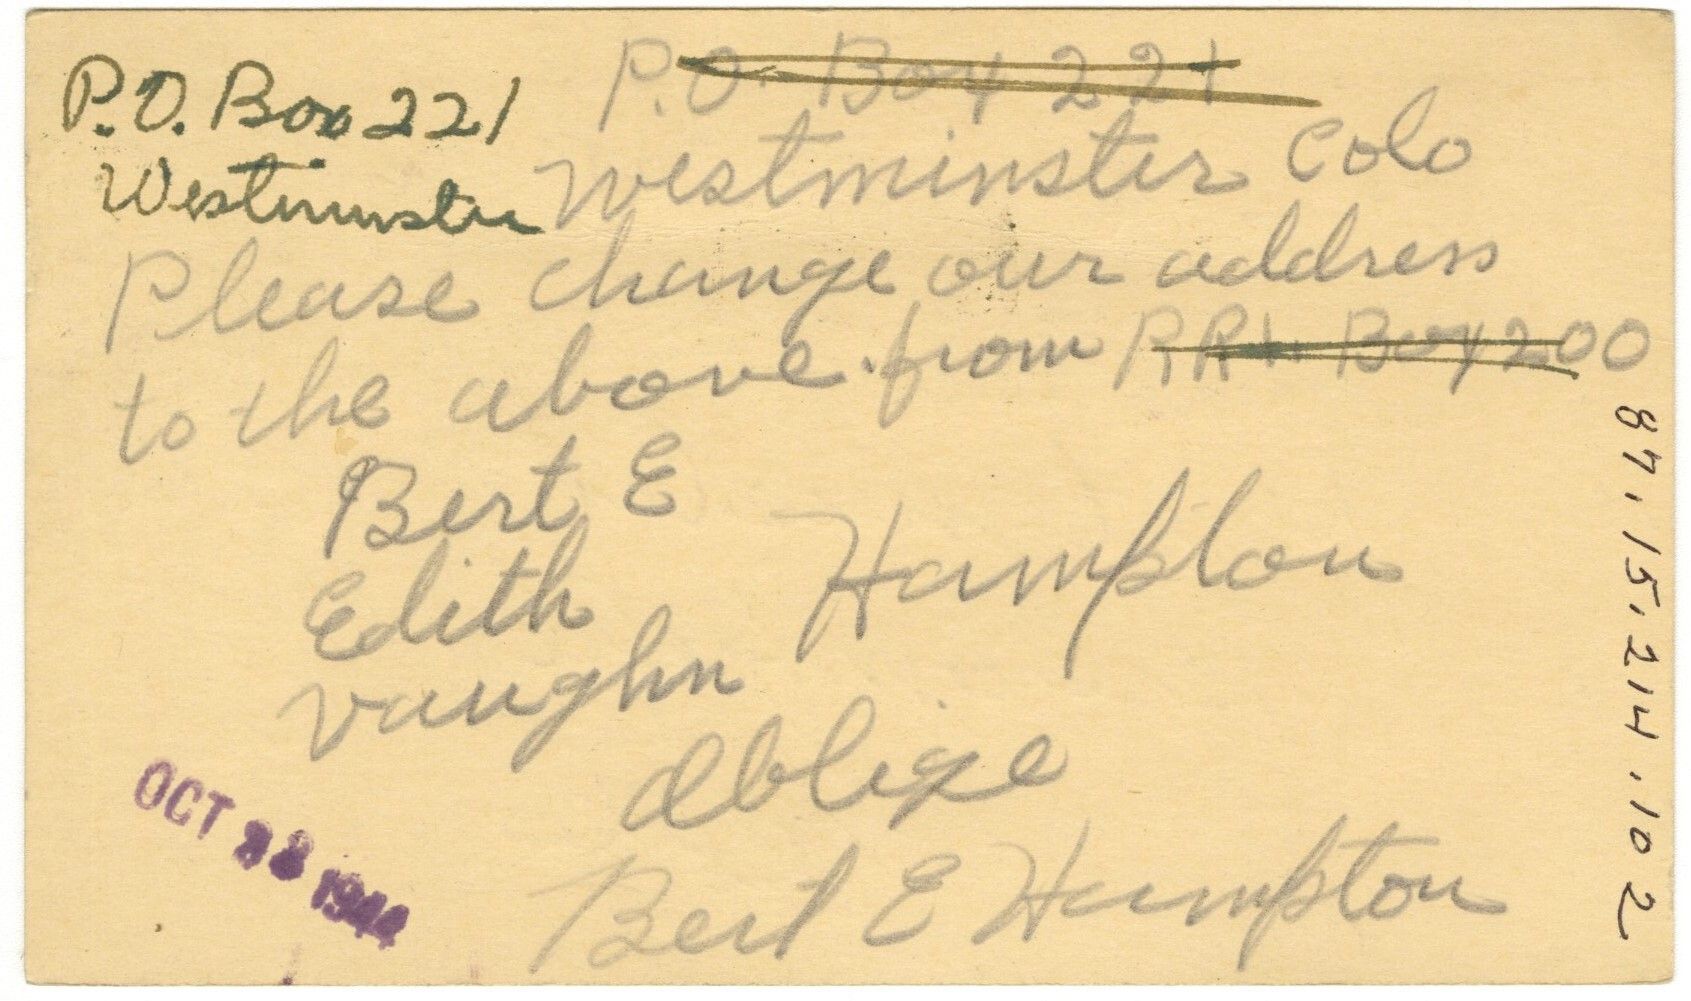 P.O. Box 221
Westminster
P.O. Box 221
Westminster Colo
Please change our address
to the above from RR1 Box 200
Bert E
Edith Hampton
Vaughn
Oblige
Bert E Hampton
OCT 1944
87.15.214.102